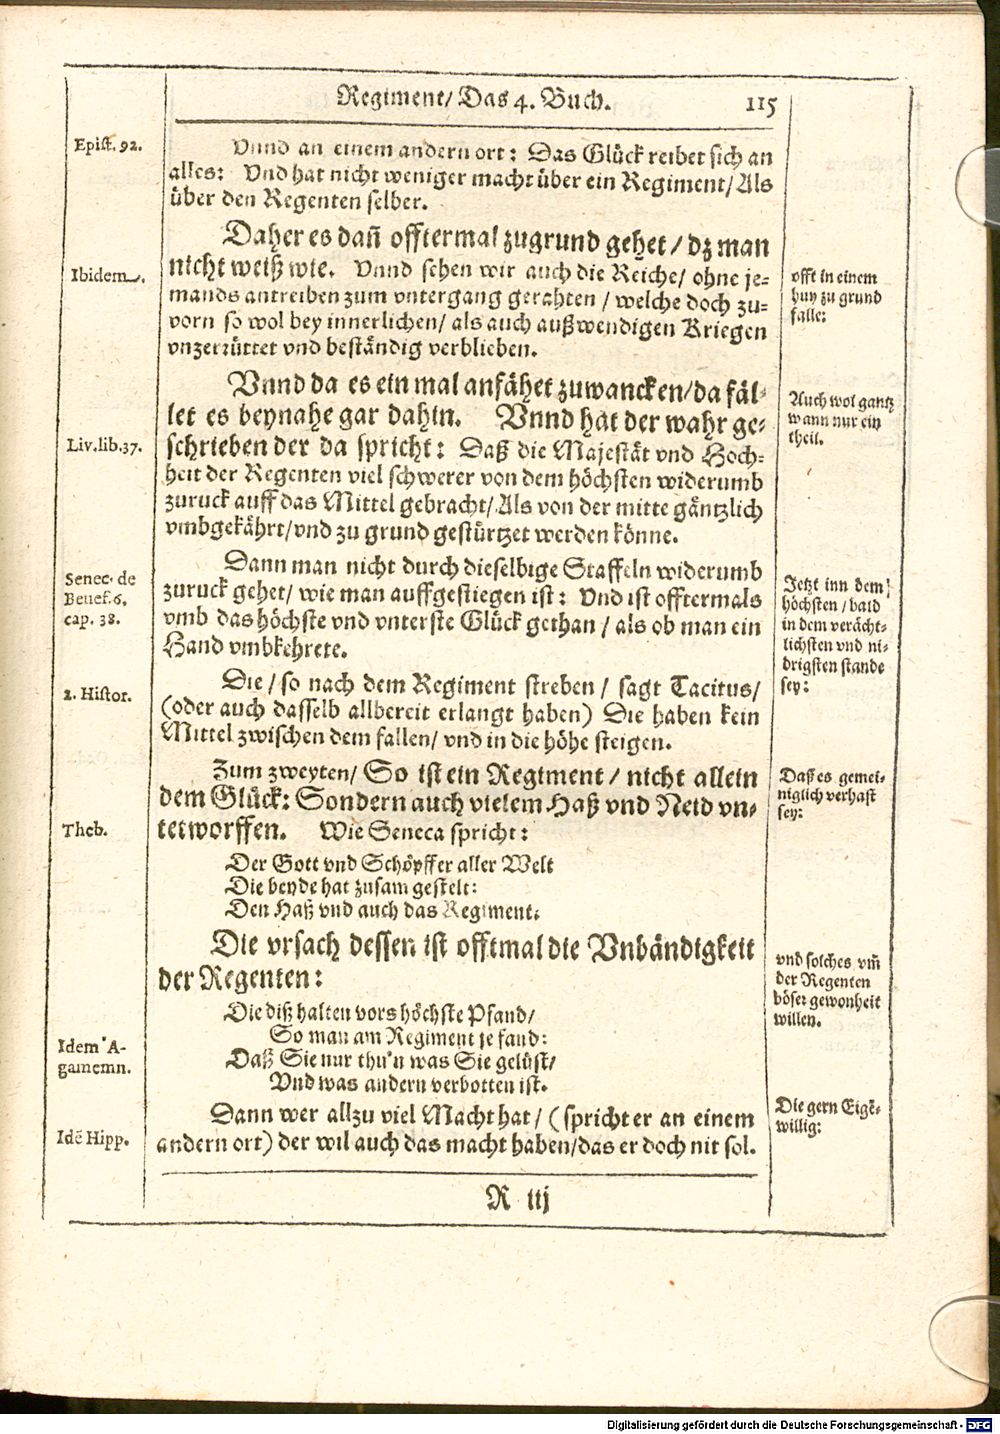 Regiment/ Das 4. Buch. 115
Epist. 92.
Vnnd an einem andern ort: Das Glück reibet sich an
alles: Vnd hat nicht weniger macht über ein Regiment/ Als
über den Regenten selber.
Daher es dañ offtermal zugrund gehet / dz man
Ibidem.
nicht weiß wie. Vnnd sehen wir auch die Reiche/ ohne je-
mands antreiben zum vntergang gerahten / welche doch zu-
vorn so wol bey innerlichen/ als auch außwendigen Kriegen
vnzerrüttet vnd beständig verblieben.
offt in einem
huy zu grund
falle:
Vnnd da es ein mal anfähet zuwancken/ da fäl-
let es beynahe gar dahin. Vnnd hat der wahr ge-
Liv. lib. 37.
schrieben der da spricht: Daß die Majestät vnd Hoch-
heit der Regenten viel schwerer von dem höchsten widerumb
zuruck auff das Mittel gebracht/ Als von der mitte gäntzlich
vmbgekährt/ vnd zu grund gestürtzet werden könne.
Auch wol gantz
wann nur ein
theil.
Dann man nicht durch dieselbige Staffeln widerumb
zuruck gehet/ wie man auffgestiegen ist: Vnd ist offtermals
vmb das höchste vnd vnterste Glück gethan / als ob man ein
Hand vmbkehrete.
Senec. de
Benef. 6.
cap. 38.
Jetzt inn dem
höchsten / bald
in dem verächt-
lichsten vnd ni-
drigsten stande
sey:
2. Histor.
Die / so nach dem Regiment streben / sagt Tacitus/
(oder auch dasselb allbereit erlangt haben) Die haben kein
Mittel zwischen dem fallen/ vnd in die höhe steigen.
Zum zweyten/ So ist ein Regiment / nicht allein
dem Glück: Sondern auch vielem Haß vnd Neid vn-
terworffen. Wie Seneca spricht:
Theb.
Daß es gemei-
niglich verhast
sey:
Der Gott vnd Schöpffer aller Welt
Die beyde hat zusam gestelt:
Den Haß vnd auch das Regiment.
Die vrsach dessen ist offtmal die Vnbändigkeit
der Regenten:
vnd solches vm̃
der Regenten
böser gewonheit
willen.
Die diß halten vors höchste Pfand/
So man am Regiment je fand:
Daß Sie nur thu'n was Sie gelüst/
Vnd was andern verbotten ist.
Idem A-
gamemn.
Dann wer allzu viel Macht hat/ (spricht er an einem
andern ort) der wil auch das macht haben/ das er doch nit sol.
Idē Hipp.
Die gern Eigē-
willig:
R iij
Digitalisierung gefördert durch die Deutsche Forschungsgemeinschaft - DFG